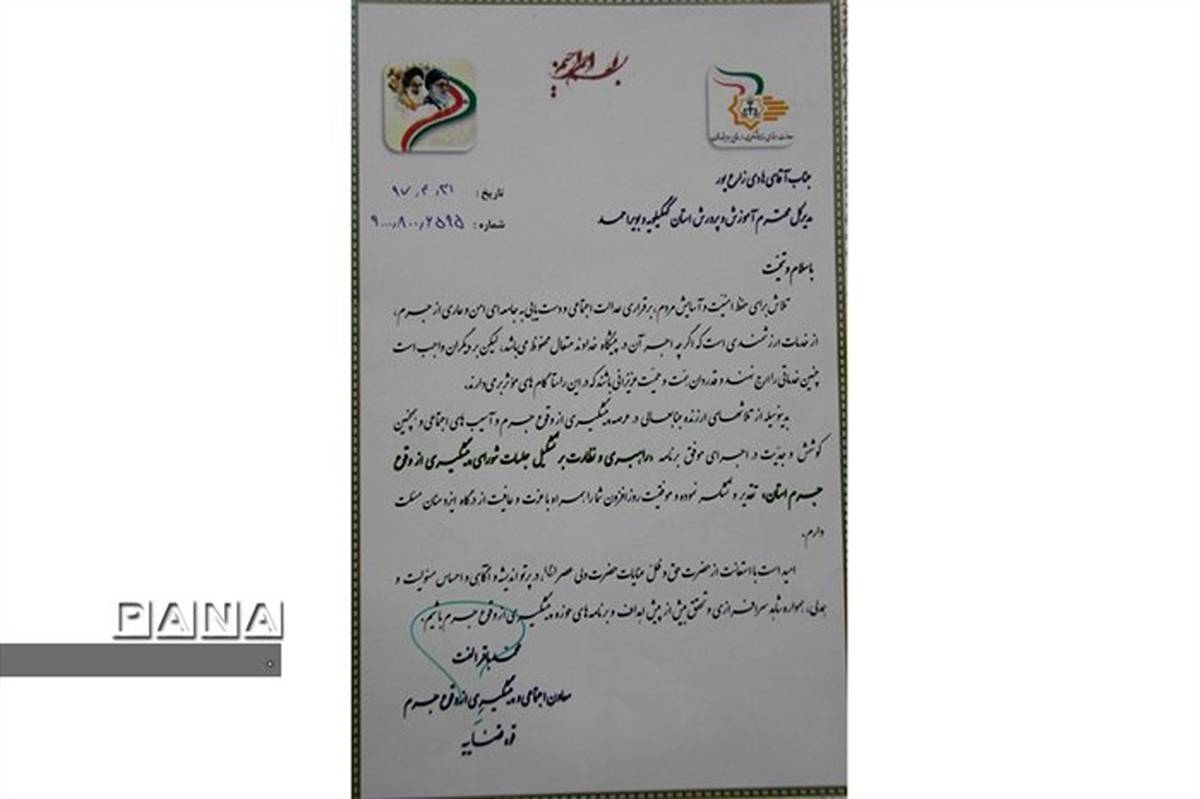 بسم الله الرحمن الرحیم
جناب آقای هادی زارع پور
مدیرکل محترم آموزش و پرورش استان کهگیلویه و بویراحمد
تاریخ : ۹۷,۴,۳۱
شماره : ۹۰۰۰,۸۰۰,۲۵۹۵
با سلام و تحیّت
تلاش برای حفظ امنیّت و آسایش مردم، برقراری عدالت اجتماعی و دست یابی به جامعه ای امن و عاری از جرم،
از خدمات ارزشمندی است که اگرچه اجر آن در پیشگاه خداوند متعال محفوظ می‌باشد، لیکن بر دیگران واجب است
چنین خدماتی را ارج نهند و قدردان همّت و حمیّت عزیزانی باشند که در این راستا گام های مؤثر بر می دارند.
بدینوسیله از تلاشهای ارزنده جنابعالی در عرصه پیشگیری از وقوع جرم و آسیب های اجتماعی و همچنین
کوشش و جدیّت در اجرای موفق برنامه «راهبری و نظارت بر تشکیل جلسات شورای پیشگیری از وقوع
جرم استان» تقدیر و تشکر نموده و موفقیّت روزافزون شما را همراه با عزت و عافیت از درگاه ایزد منان مسئلت
دارم.
امید است با استعانت از حضرت حق و ظلّ عنایات حضرت ولی عصر(عج)، در پرتو اندیشه و آگاهی و احساس مسئولیت و
همدلی، همواره شاهد سرافرازی و تحقق بیش از پیش اهداف و برنامه های حوزه پیشگیری از وقوع جرم باشیم.
محمدباقر الفت
معاون اجتماعی و پیشگیری از وقوع جرم
قوه قضاییه
PANA